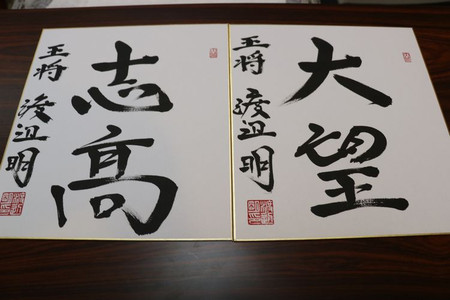 大望
王将 渡辺明
志高
王将 渡辺明